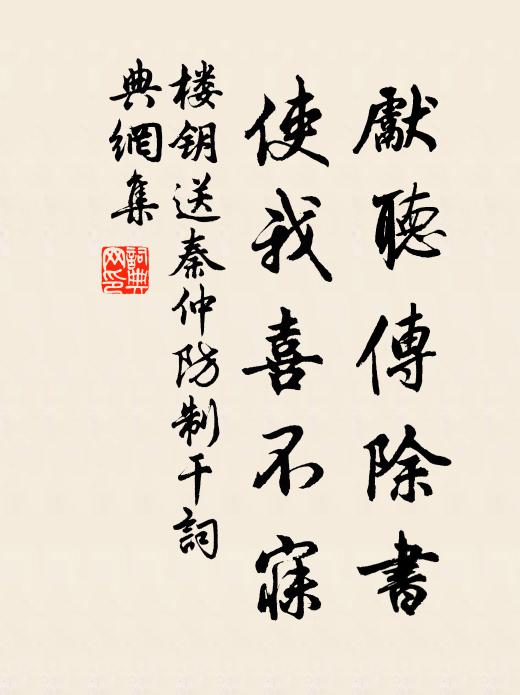 獻聽傳除書
使我喜不寐
楼钥送秦仲防制干詞
典網集
詞典
网印